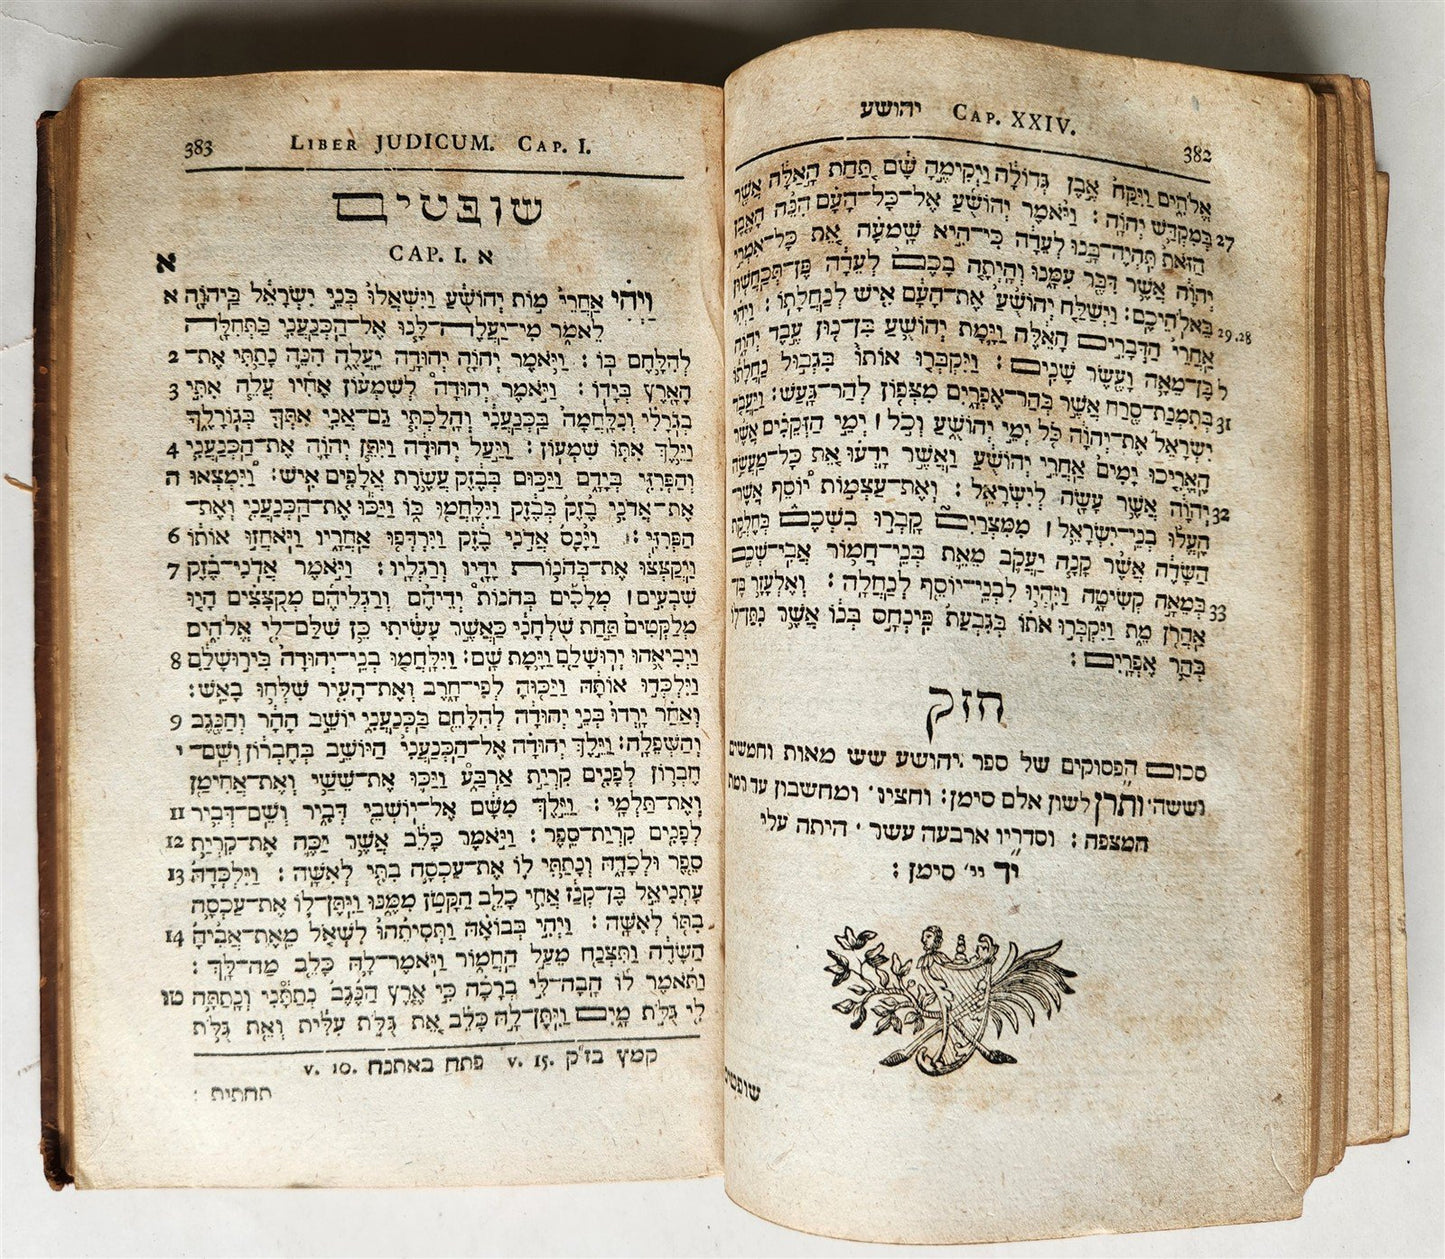 יהושע Cap. XXIV.
382
אֱלֹהִים וַיִּקַּח אֶבֶן גְּדוֹלָה וַיְקִימֶהָ שָּׁם תַּחַת הָאַלָּה אֲשֶׁר
27 בְּמִקְדַּשׁ יְהוָה׃ וַיֹּאמֶר יְהוֹשֻׁעַ אֶל־כָּל־הָעָם הִנֵּה הָאֶבֶן
הַזֹּאת תִּהְיֶה־בָּנוּ לְעֵדָה כִּי־הִיא שָׁמְעָה אֵת כָּל־אִמְרֵי
יְהוָה אֲשֶׁר דִּבֶּר עִמָּנוּ וְהָיְתָה בָכֶם לְעֵדָה פֶּן־תְּכַחֲשׁוּן
29.28 בֵּאלֹהֵיכֶם׃ וַיְשַׁלַּח יְהוֹשֻׁעַ אֶת־הָעָם אִישׁ לְנַחֲלָתוֹ׃ וַיְהִי
אַחֲרֵי הַדְּבָרִים הָאֵלֶּה וַיָּמָת יְהוֹשֻׁעַ בִּן־נוּן עֶבֶד יְהוָה
ל בֶּן־מֵאָה וָעֶשֶׂר שָׁנִים׃ וַיִּקְבְּרוּ אוֹתוֹ בִּגְבוּל נַחֲלָתוֹ
31 בְּתִמְנַת־סֶרַח אֲשֶׁר בְּהַר־אֶפְרָיִם מִצְּפוֹן לְהַר־גָּעַשׁ׃ וַיַּעֲבֹד
יִשְׂרָאֵל אֶת־יְהוָה כֹּל יְמֵי יְהוֹשֻׁעַ וְכֹל ׀ יְמֵי הַזְּקֵנִים אֲשֶׁר
הֶאֱרִיכוּ יָמִים אַחֲרֵי יְהוֹשֻׁעַ וַאֲשֶׁר יָדְעוּ אֵת כָּל־מַעֲשֵׂה
32 יְהוָה אֲשֶׁר עָשָׂה לְיִשְׂרָאֵל׃ וְאֶת־עַצְמוֹת יוֹסֵף אֲשֶׁר
הֶעֱלוּ בְנֵי־יִשְׂרָאֵל ׀ מִמִּצְרַיִם קָבְרוּ בִשְׁכֶם בְּחֶלְקַת
הַשָּׂדֶה אֲשֶׁר קָנָה יַעֲקֹב מֵאֵת בְּנֵי־חֲמוֹר אֲבִי־שְׁכֶם
33 בְּמֵאָה קְשִׂיטָה וַיִּהְיוּ לִבְנֵי־יוֹסֵף לְנַחֲלָה׃ וְאֶלְעָזָר בֶּן־
אַהֲרֹן מֵת וַיִּקְבְּרוּ אֹתוֹ בְּגִבְעַת פִּינְחָס בְּנוֹ אֲשֶׁר נִתַּן־לוֹ
בְּהַר אֶפְרָיִם׃
חזק
סכום הפסוקים של ספר יהושע שש מאות וחמשים
וששה׳ ותרן לשון אלם סימן׃ וחציו׳ ומחשבון עד ומת
המצפה׃ וסדריו ארבעה עשר׳ היתה עלי
יד יי׳ סימן׃
שופטים
383 Liber JUDICUM. Cap. I.
שופטים
CAP. I. א
א
א וַיְהִי אַחֲרֵי מוֹת יְהוֹשֻׁעַ וַיִּשְׁאֲלוּ בְּנֵי יִשְׂרָאֵל בַּיהוָה
לֵאמֹר מִי־יַעֲלֶה־לָּנוּ אֶל־הַכְּנַעֲנִי בַּתְּחִלָּה
2 לְהִלָּחֶם בּוֹ׃ וַיֹּאמֶר יְהוָה יְהוּדָה יַעֲלֶה הִנֵּה נָתַתִּי אֶת־
3 הָאָרֶץ בְּיָדוֹ׃ וַיֹּאמֶר יְהוּדָה לְשִׁמְעוֹן אָחִיו עֲלֵה אִתִּי
בְגֹרָלִי וְנִלָּחֲמָה בַּכְּנַעֲנִי וְהָלַכְתִּי גַם־אֲנִי אִתְּךָ בְּגוֹרָלֶךָ
4 וַיֵּלֶךְ אִתּוֹ שִׁמְעוֹן׃ וַיַּעַל יְהוּדָה וַיִּתֵּן יְהוָה אֶת־הַכְּנַעֲנִי
ה וְהַפְּרִזִּי בְּיָדָם וַיַּכּוּם בְּבֶזֶק עֲשֶׂרֶת אֲלָפִים אִישׁ׃ וַיִּמְצְאוּ
אֶת־אֲדֹנִי בֶזֶק בְּבֶזֶק וַיִּלָּחֲמוּ בּוֹ וַיַּכּוּ אֶת־הַכְּנַעֲנִי וְאֶת־
6 הַפְּרִזִּי׃ וַיָּנָס אֲדֹנִי בֶזֶק וַיִּרְדְּפוּ אַחֲרָיו וַיֹּאחֲזוּ אוֹתוֹ
7 וַיְקַצְּצוּ אֶת־בְּהֹנוֹת יָדָיו וְרַגְלָיו׃ וַיֹּאמֶר אֲדֹנִי־בֶזֶק
שִׁבְעִים ׀ מְלָכִים בְּהֹנוֹת יְדֵיהֶם וְרַגְלֵיהֶם מְקֻצָּצִים הָיוּ
מְלַקְּטִים תַּחַת שֻׁלְחָנִי כַּאֲשֶׁר עָשִׂיתִי כֵּן שִׁלַּם־לִי אֱלֹהִים
8 וַיְבִיאֻהוּ יְרוּשָׁלִַם וַיָּמָת שָׁם׃ וַיִּלָּחֲמוּ בְנֵי־יְהוּדָה בִּירוּשָׁלִַם
וַיִּלְכְּדוּ אוֹתָהּ וַיַּכּוּהָ לְפִי־חָרֶב וְאֶת־הָעִיר שִׁלְּחוּ בָאֵשׁ׃
9 וְאַחַר יָרְדוּ בְּנֵי יְהוּדָה לְהִלָּחֵם בַּכְּנַעֲנִי יוֹשֵׁב הָהָר וְהַנֶּגֶב
י וְהַשְּׁפֵלָה׃ וַיֵּלֶךְ יְהוּדָה אֶל־הַכְּנַעֲנִי הַיּוֹשֵׁב בְּחֶבְרוֹן וְשֵׁם־
חֶבְרוֹן לְפָנִים קִרְיַת אַרְבַּע וַיַּכּוּ אֶת־שֵׁשַׁי וְאֶת־אֲחִימַן
11 וְאֶת־תַּלְמָי׃ וַיֵּלֶךְ מִשָּׁם אֶל־יוֹשְׁבֵי דְּבִיר וְשֵׁם־דְּבִיר
12 לְפָנִים קִרְיַת־סֵפֶר׃ וַיֹּאמֶר כָּלֵב אֲשֶׁר יַכֶּה אֶת־קִרְיַת
13 סֵפֶר וּלְכָדָהּ וְנָתַתִּי לוֹ אֶת־עַכְסָה בִתִּי לְאִשָּׁה׃ וַיִּלְכְּדָהּ
עָתְנִיאֵל בֶּן־קְנַז אֲחִי כָלֵב הַקָּטֹן מִמֶּנּוּ וַיִּתֶּן־לוֹ אֶת־עַכְסָה
14 בִתּוֹ לְאִשָּׁה׃ וַיְהִי בְּבוֹאָהּ וַתְּסִיתֵהוּ לִשְׁאֹל מֵאֵת־אָבִיהָ
הַשָּׂדֶה וַתִּצְנַח מֵעַל הַחֲמוֹר וַיֹּאמֶר־לָהּ כָּלֵב מַה־לָּךְ׃
טו וַתֹּאמֶר לוֹ הָבָה־לִּי בְרָכָה כִּי אֶרֶץ הַנֶּגֶב נְתַתָּנִי וְנָתַתָּה
לִי גֻּלֹּת מָיִם וַיִּתֶּן־לָהּ כָּלֵב אֵת גֻּלֹּת עִלִּית וְאֵת גֻּלֹּת
v. 10. פתח באתנח v. 15. קמץ בז״ק
תחתית׃